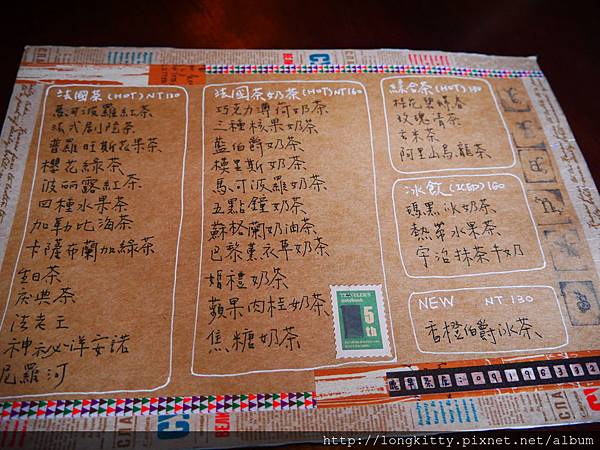 法國茶(HOT)NT130
馬可波羅紅茶
法式劇院茶
普羅旺斯花果茶
櫻花綠茶
波麗露紅茶
四種水果茶
加勒比海茶
卡薩布蘭加綠茶
生日茶
慶典茶
法老王
神祕洋安諾
尼羅河
法國茶奶茶(HOT)NT160
巧克力薄荷奶茶
三種核果奶茶
藍伯爵奶茶
模里斯奶茶
馬可波羅奶茶
五點鐘奶茶
蘇格蘭奶油茶
巴黎薰衣草奶茶
婚禮奶茶
蘋果肉桂奶茶
焦糖奶茶
TRAVELER'S
notebook
5th
綜合茶(HOT)
桂花碧螺春
玫瑰清茶
玄米茶
阿里山烏龍茶
冰飲(ICED)160
瑪黑冰奶茶
熱帶水果茶
宇治抹茶牛奶
NEW NT 130
香橙伯爵冰茶
http://longkitty.pixnet.net/album